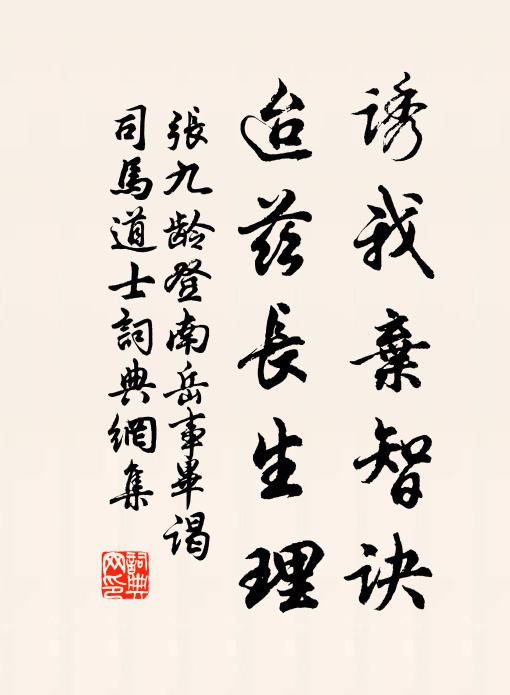 誘我棄智訣
迨茲長生理
張九齡登南岳事畢謁
司馬道士詞典網集
詞典
网印